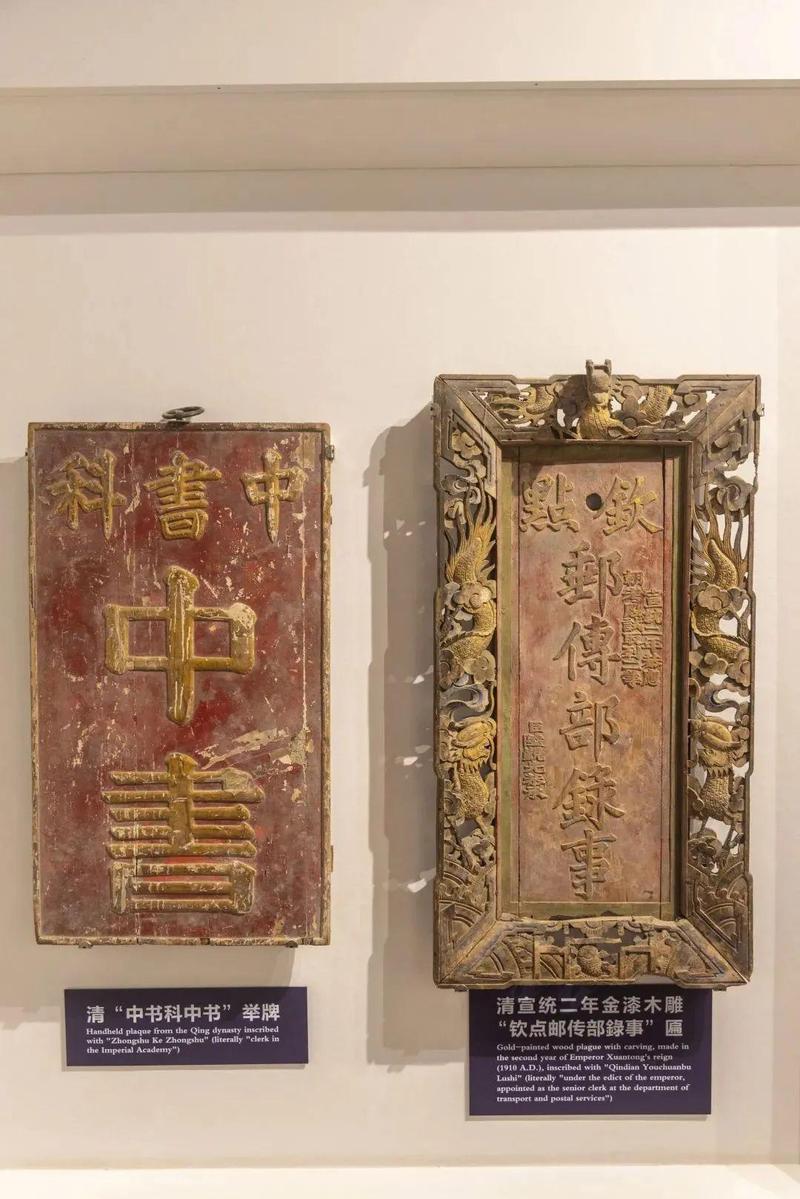 中書科
中書
清“中书科中书”举牌
Handheld plaque from the Qing dynasty inscribed
with "Zhongshu Ke Zhongshu" (literally "clerk in
the Imperial Academy")
欽點
宣統二年
郵傳部錄事
清宣统二年金漆木雕
“钦点邮传部錄事”匾
Gold-painted wood plague with carving, made in
the second year of Emperor Xuantong's reign
(1910 A.D.), inscribed with "Qindian Youchuanbu
Lushi" (literally "under the edict of the emperor,
appointed as the senior clerk at the department of
transport and postal services")